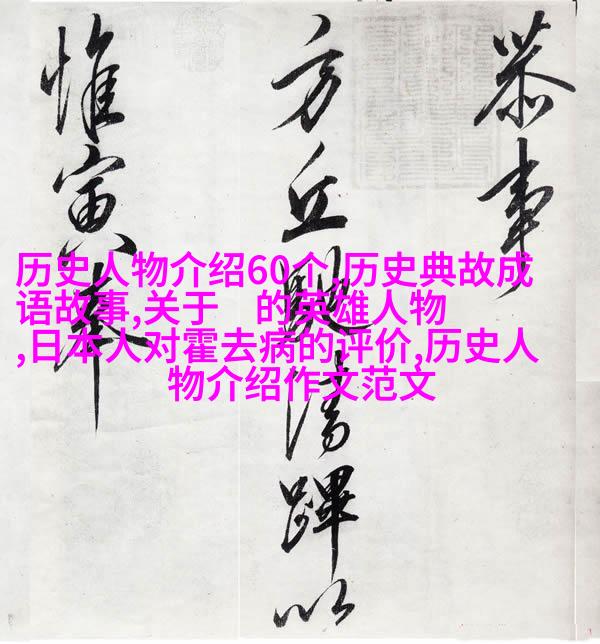 恭事
方丘馳清蹕以
惟寅奉
历史人物介绍60个,历史典故成
语故事,关于　的英雄人物
,日本人对霍去病的评价,历史人
物介绍作文范文